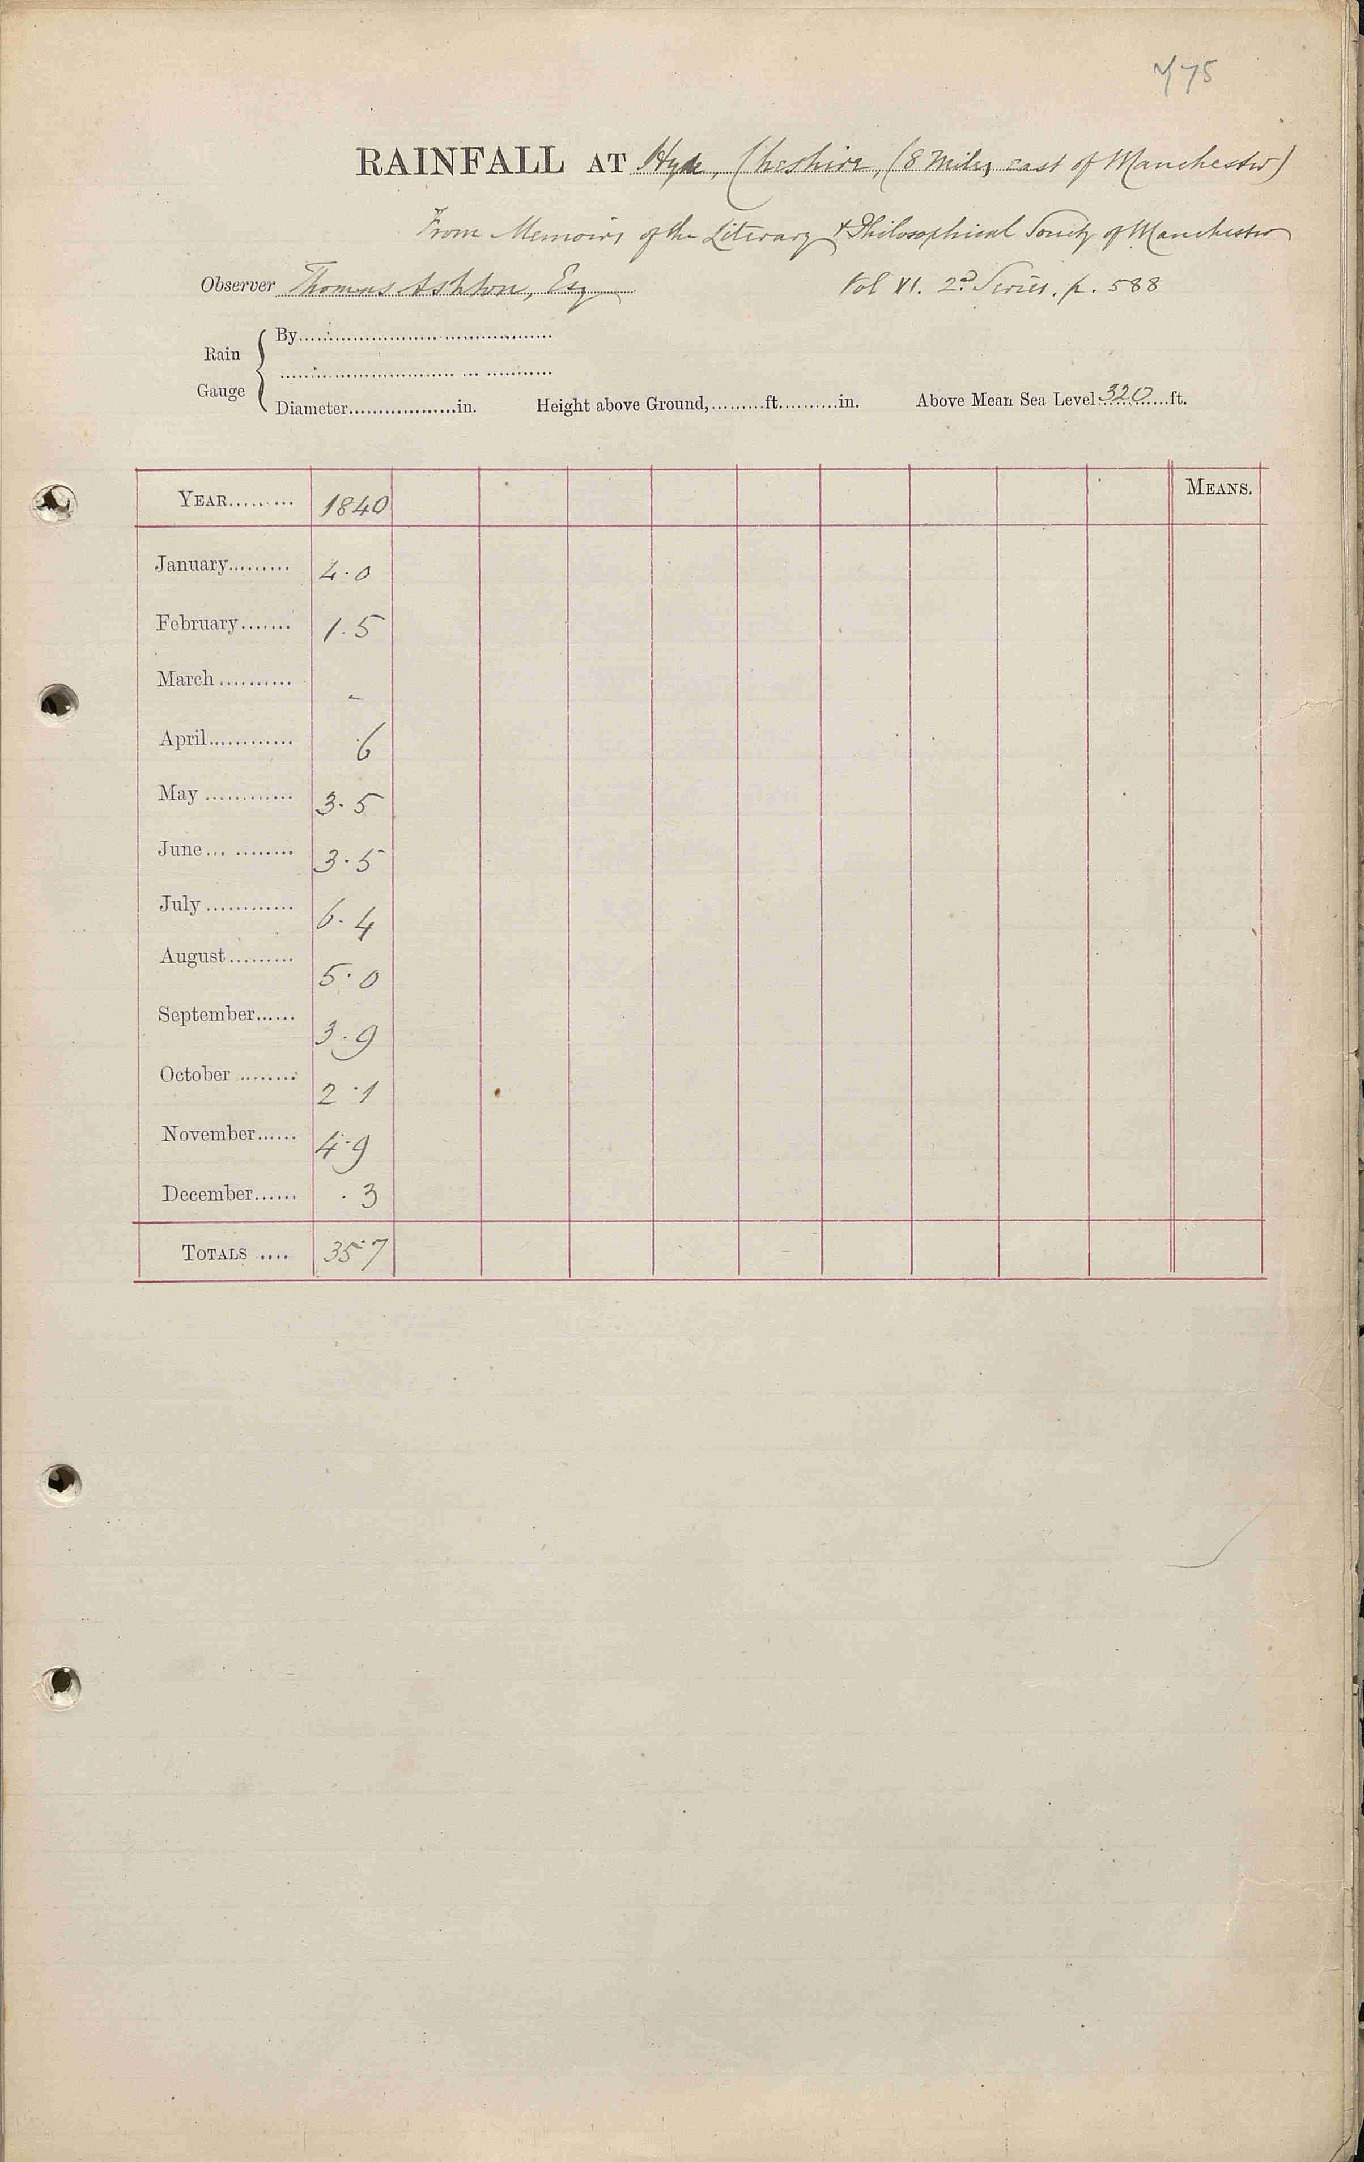 475
RAINFALL AT Hyde, Cheshire, (8 Miles east of Manchester)
From Memoirs of the Literary & Philosophical Society of Manchester
Observer Thomas Ashton, Esq Vol VI. 2d Series. p. 588
Rain Gauge { By
Diameter in. Height above Ground, ft. in. Above Mean Sea Level 320 ft.
YEAR 1840 MEANS.
January 4.0
February 1.5
March -
April .6
May 3.5
June 3.5
July 6.4
August 5.0
September 3.9
October 2.1
November 4.9
December .3
TOTALS 35.7